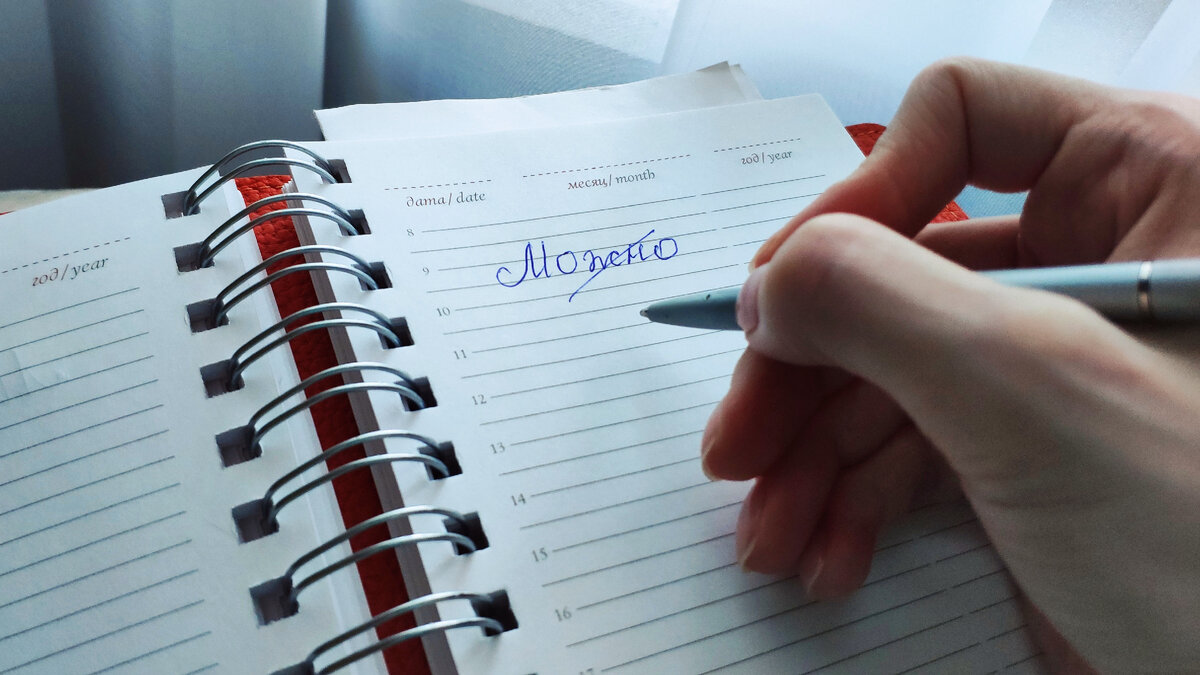 год/year
дата/date
месяц/month
год/year
8
9
10
11
12
13
14
15
16
17